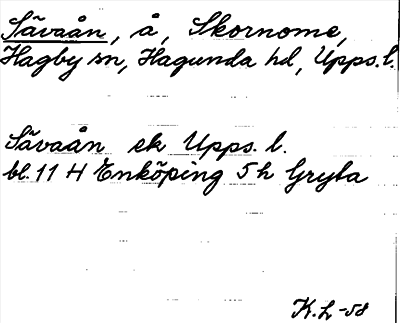 Sävaån, å, Skornome,
Hagby sn, Hagunda hd, Upps. l.
Sävaån ek Upps. l.
bl. 11 H Enköping 5 h Gryta
K.L -58